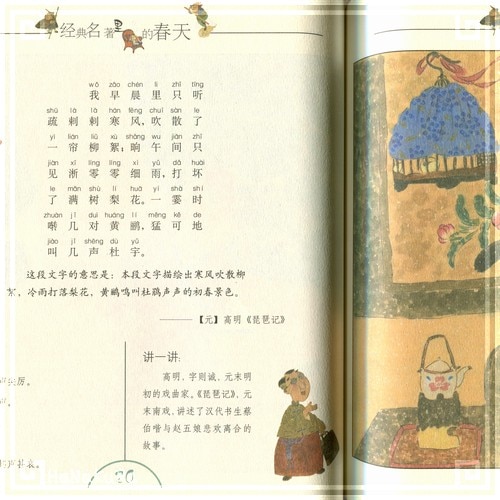 经典名著里的春天
wǒ zǎo chén lǐ zhǐ tīng
我早晨里只听
shū là là hán fēng chuī sàn le
疏剌剌寒风,吹散了
yì lián liǔ xù shǎng wu jiān zhǐ
一帘柳絮;晌午间只
jiàn xī líng líng xì yǔ dǎ huài
见淅零零细雨,打坏
le mǎn shù lí huā yí shà shí
了满树梨花。一霎时
zhuàn jǐ duì huáng lí měng kě de
啭几对黄鹂,猛可地
jiào jǐ shēng dù yǔ
叫几声杜宇。
这段文字的意思是:本段文字描绘出寒风吹散柳
絮,冷雨打落梨花,黄鹂鸣叫杜鹃声声的初春景色。
——【元】高明《琵琶记》
讲一讲:
高明,字则诚,元末明
初的戏曲家。《琵琶记》,元
末南戏,讲述了汉代书生蔡
伯喈与赵五娘悲欢离合的
故事。